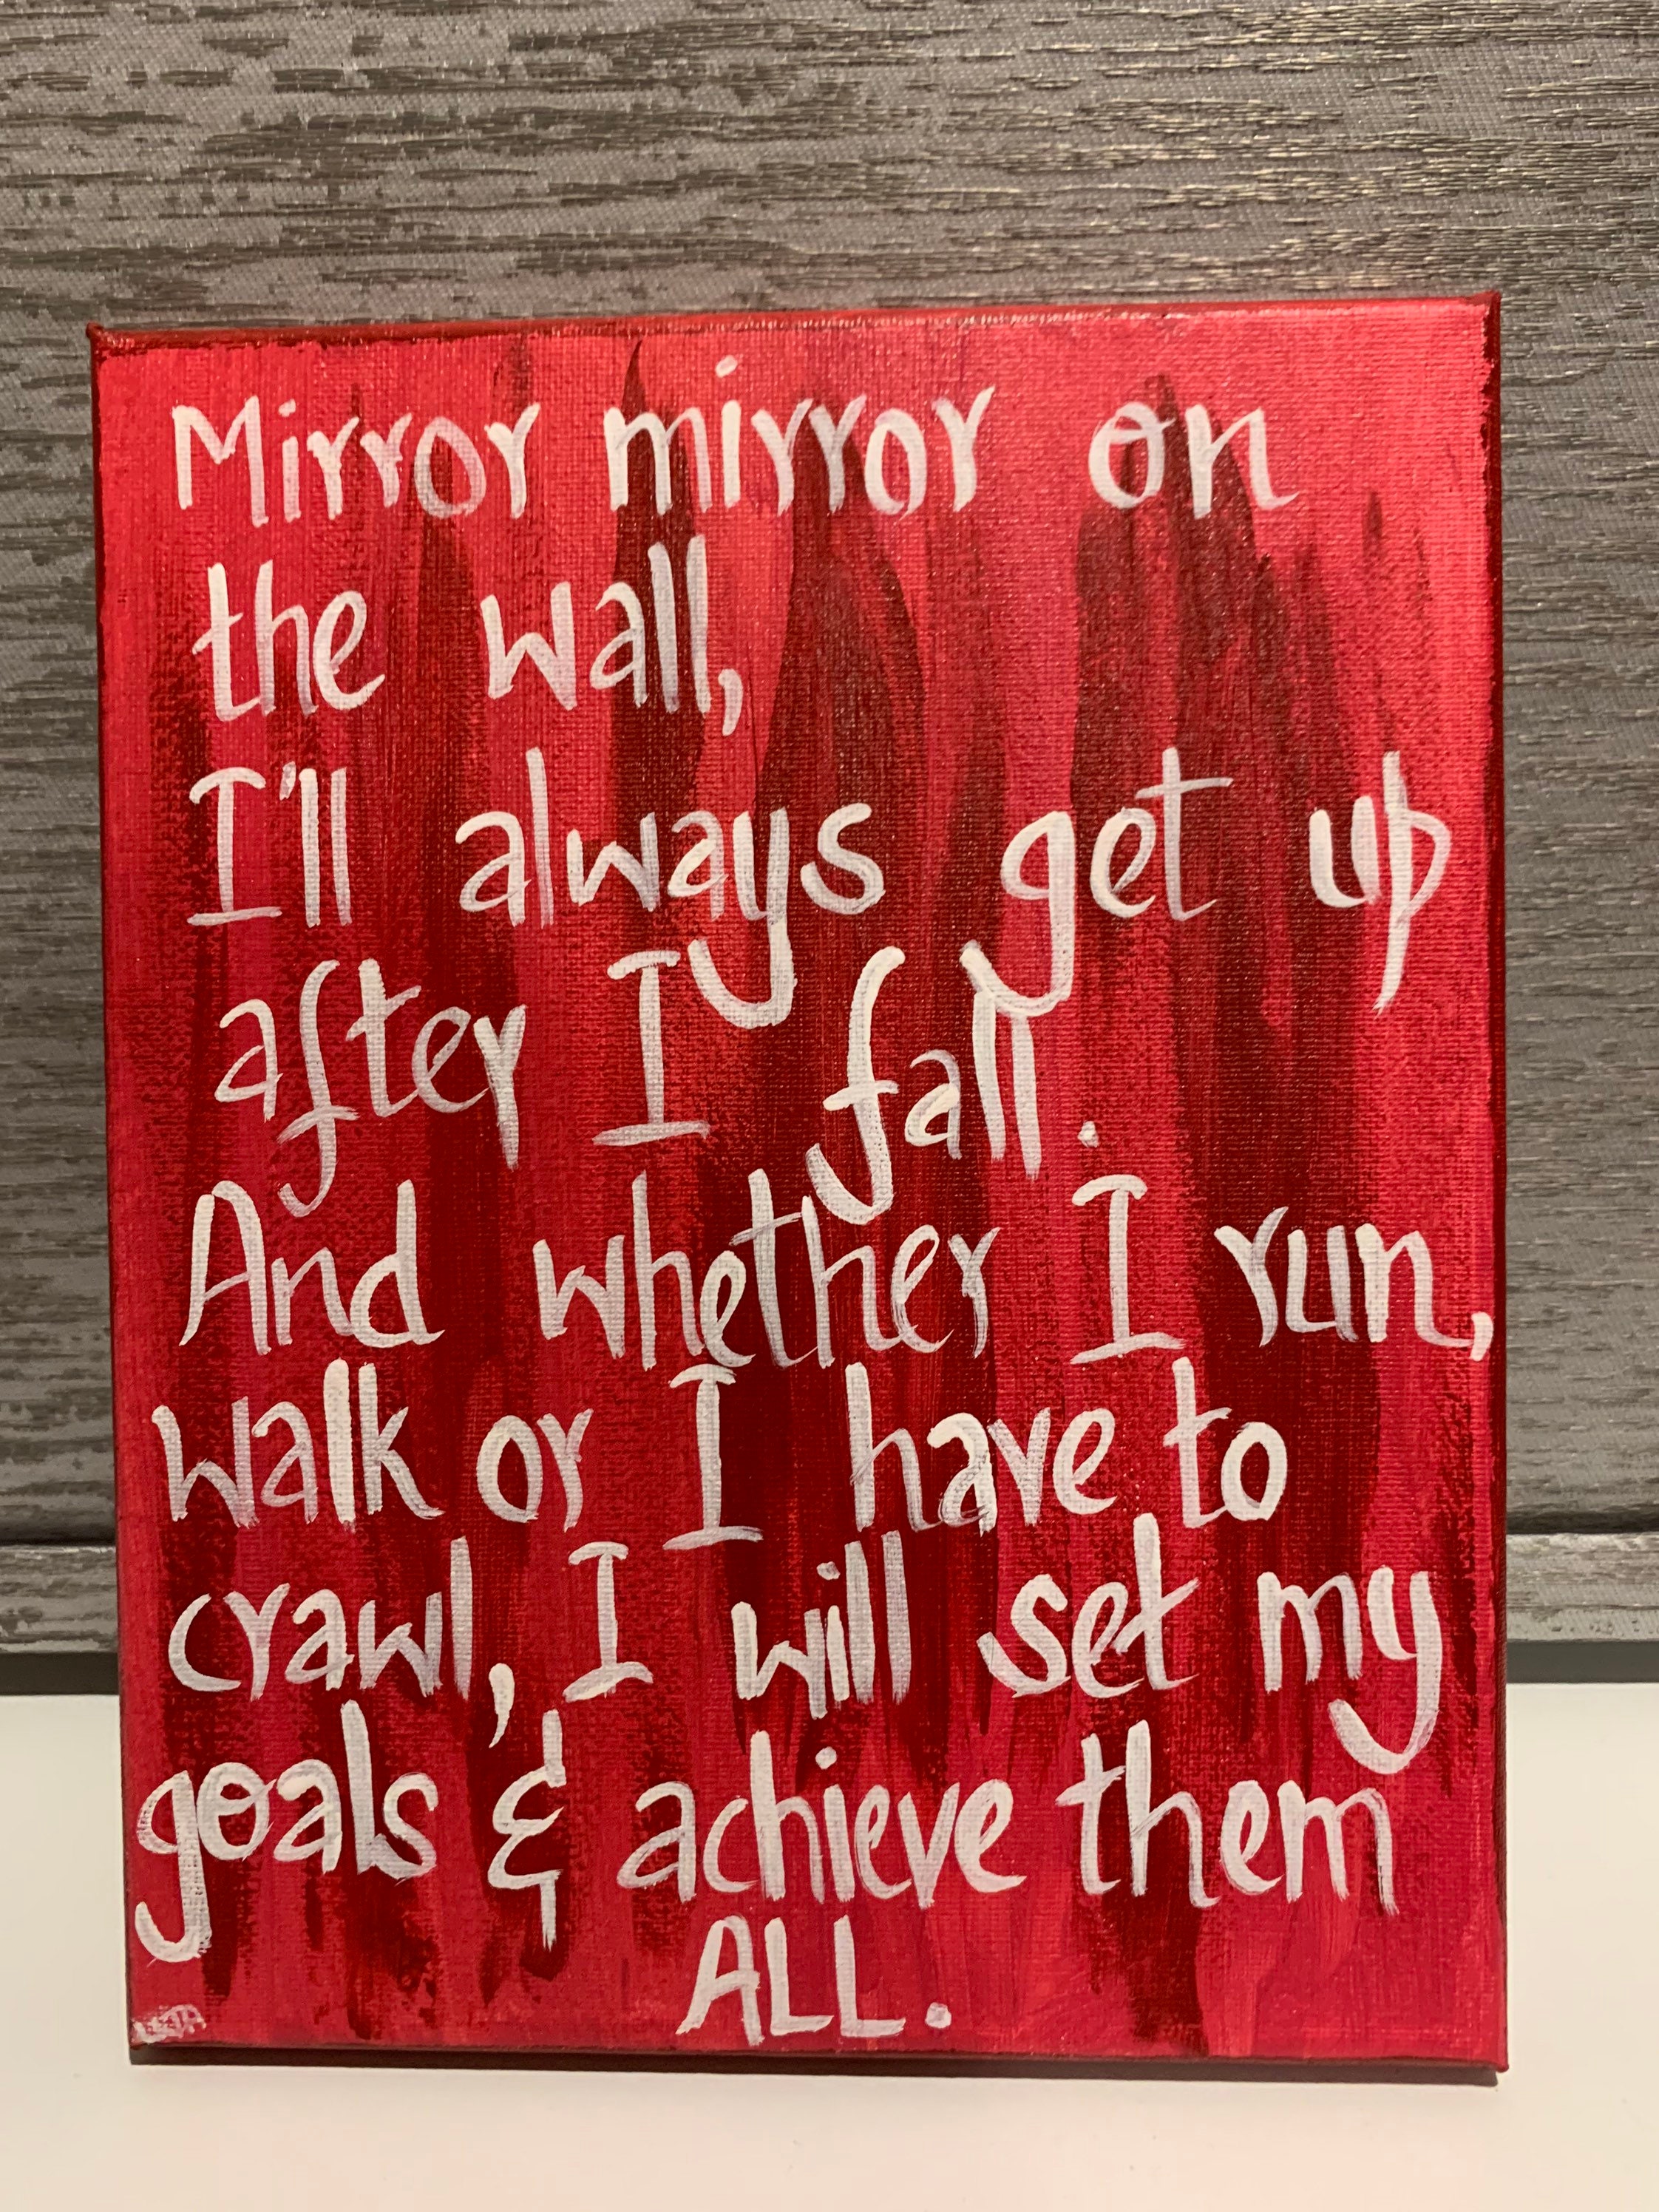 Mirror mirror on
the wall,
I'll always get up
after I fall.
And whether I run,
walk or I have to
crawl, I will set my
goals & achieve them
ALL.